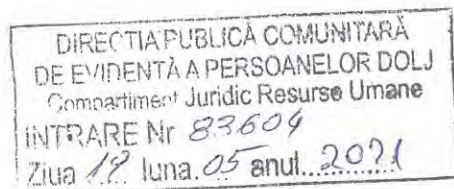 DIRECȚIA PUBLICĂ COMUNITARĂ
DE EVIDENȚĂ A PERSOANELOR DOLJ
Compartiment Juridic Resurse Umane
INTRARE Nr 83604
Ziua 19 luna 05 anul 2021